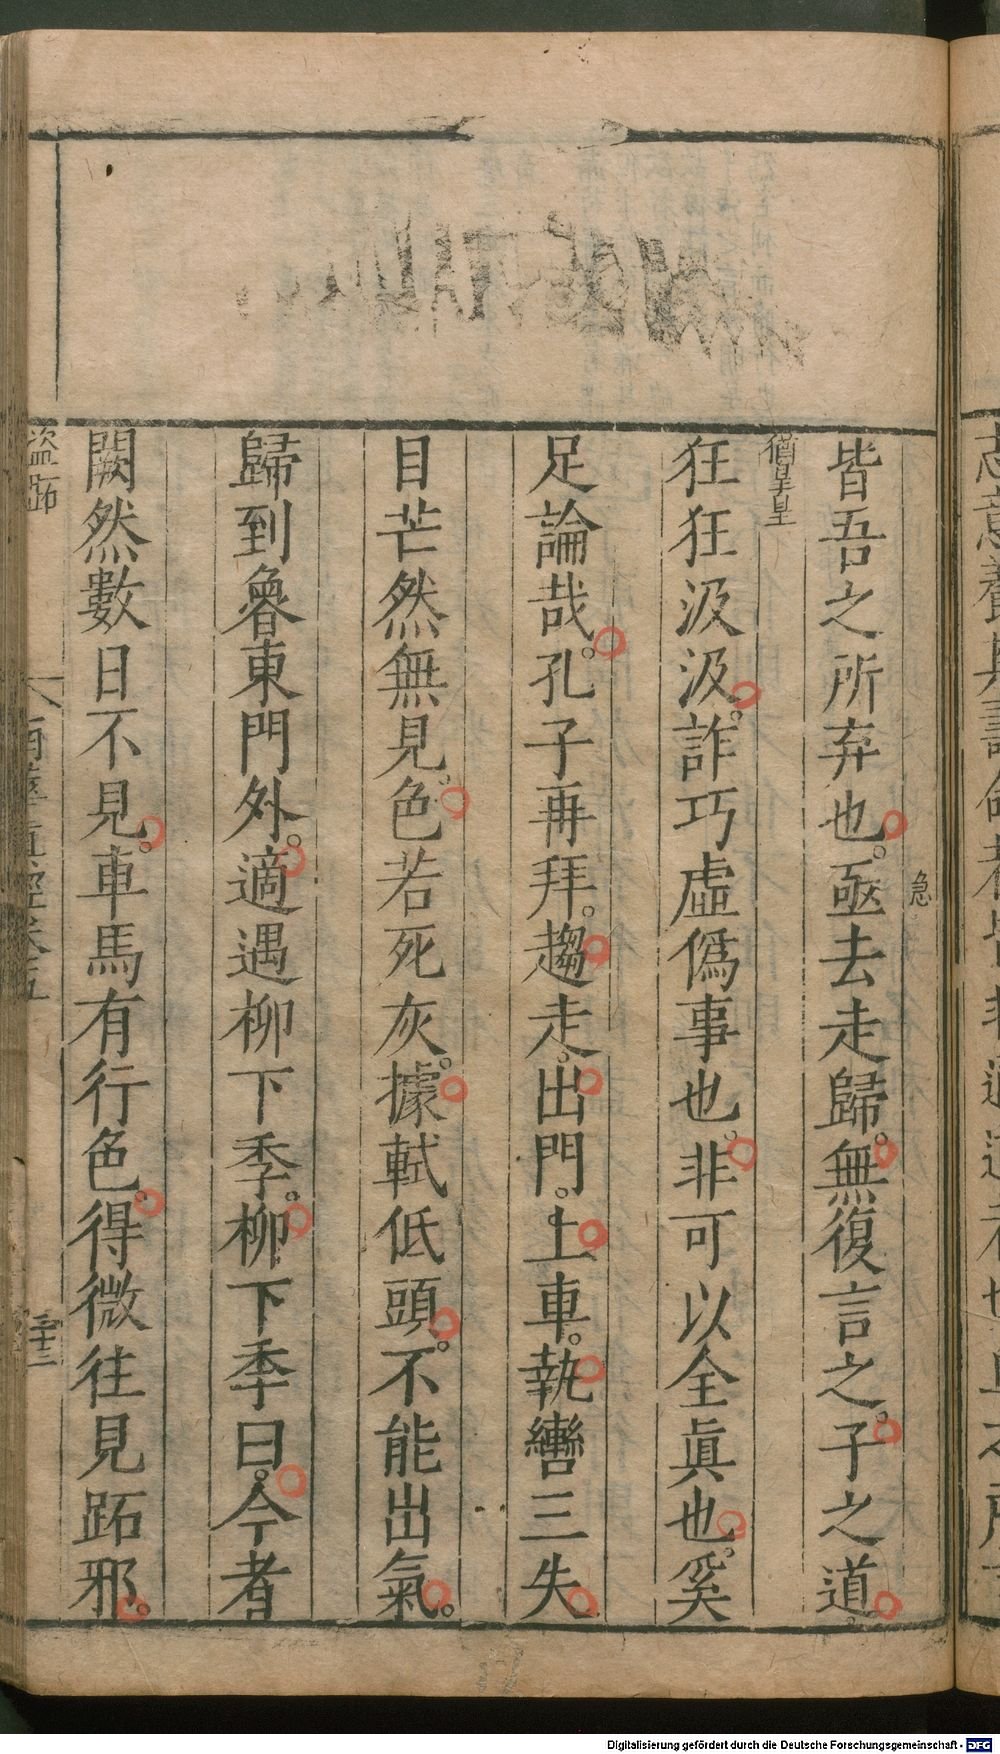 皆吾之所弃也。亟去走歸。無復言之。子之道。
急
狂狂汲汲。詐巧虛僞事也。非可以全眞也。奚
猶皇皇
足論哉。孔子再拜。趨走。出門。上車。執轡三失。
目芒然無見。色若死灰。據軾低頭。不能出氣。
歸到魯東門外。適遇柳下季。柳下季曰。今者
闕然數日不見。車馬有行色。得微往見跖邪。
盜跖
南華眞經卷五
三十二
Digitalisierung gefördert durch die Deutsche Forschungsgemeinschaft - DFG